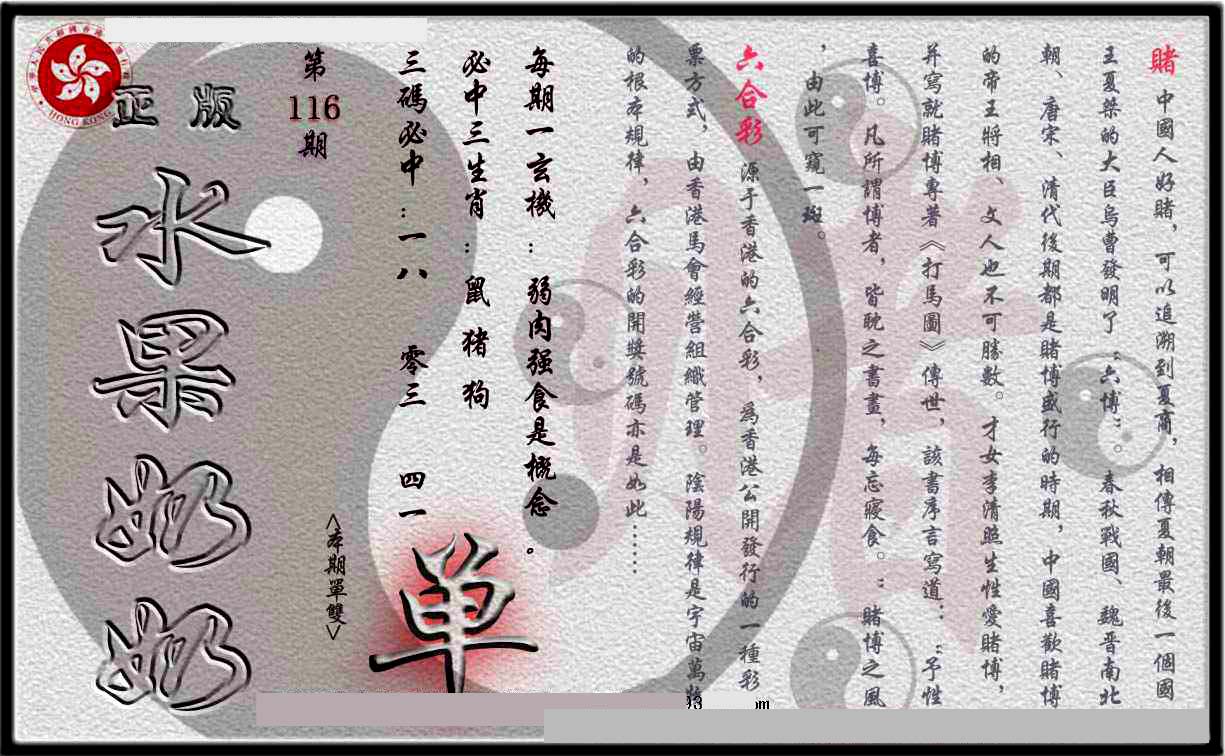 賭 中國人好賭，可以追溯到夏商，相傳夏朝最後一個國
王夏桀的大臣烏曹發明了“六博”。春秋戰國、魏晋南北
朝、唐宋、清代後期都是賭博盛行的時期，中國喜歡賭博
的帝王將相、文人也不可勝數。才女李清照生性愛賭博，
并寫就賭博專著《打馬圖》傳世，該書序言寫道：“予性
喜博。凡所謂博者，皆耽之書畫，每忘寢食。”賭博之風
，由此可窺一斑。
六合彩 源于香港的六合彩，為香港公開發行的一種彩
票方式，由香港馬會經營組織管理。陰陽規律是宇宙萬物
的根本規律，六合彩的開獎號碼亦是如此……
每期一玄機：弱肉强食是概念。
必中三生肖：鼠 猪 狗
三碼必中：一八 零三 四一
<本期單雙>
单
第
116
期
正版
水果奶奶
HONG KONG